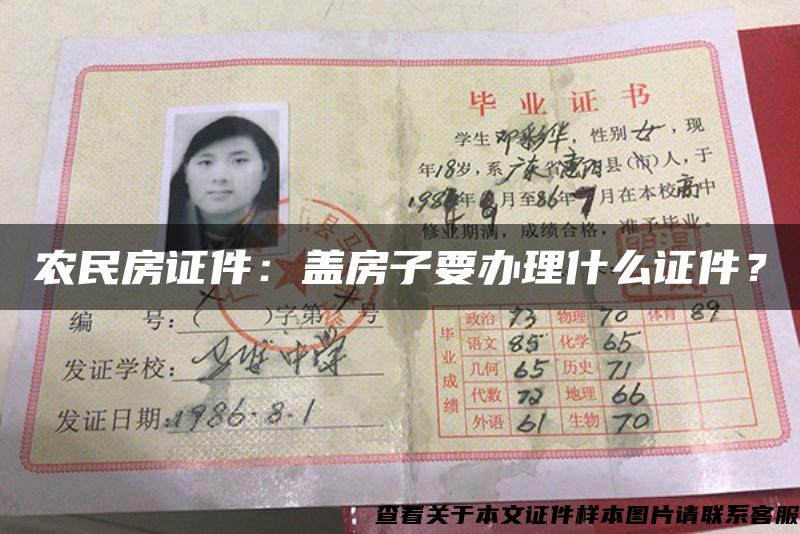 毕业证书
学生邓彩华，性别女，现
年18岁，系广东省惠阳县(市)人，于
月至86年7月在本校高中
修业期满，成绩合格，准予毕业。
农民房证件：盖房子要办理什么证件？
编 号：( )字第 号
发证学校：
中学
发证日期：1986.8.1
毕业成绩
政治 73 物理 70 体育 89
语文 85 化学 65
几何 65 历史 71
代数 72 地理 66
外语 61 生物 70
查看关于本文证件样本图片请联系客服